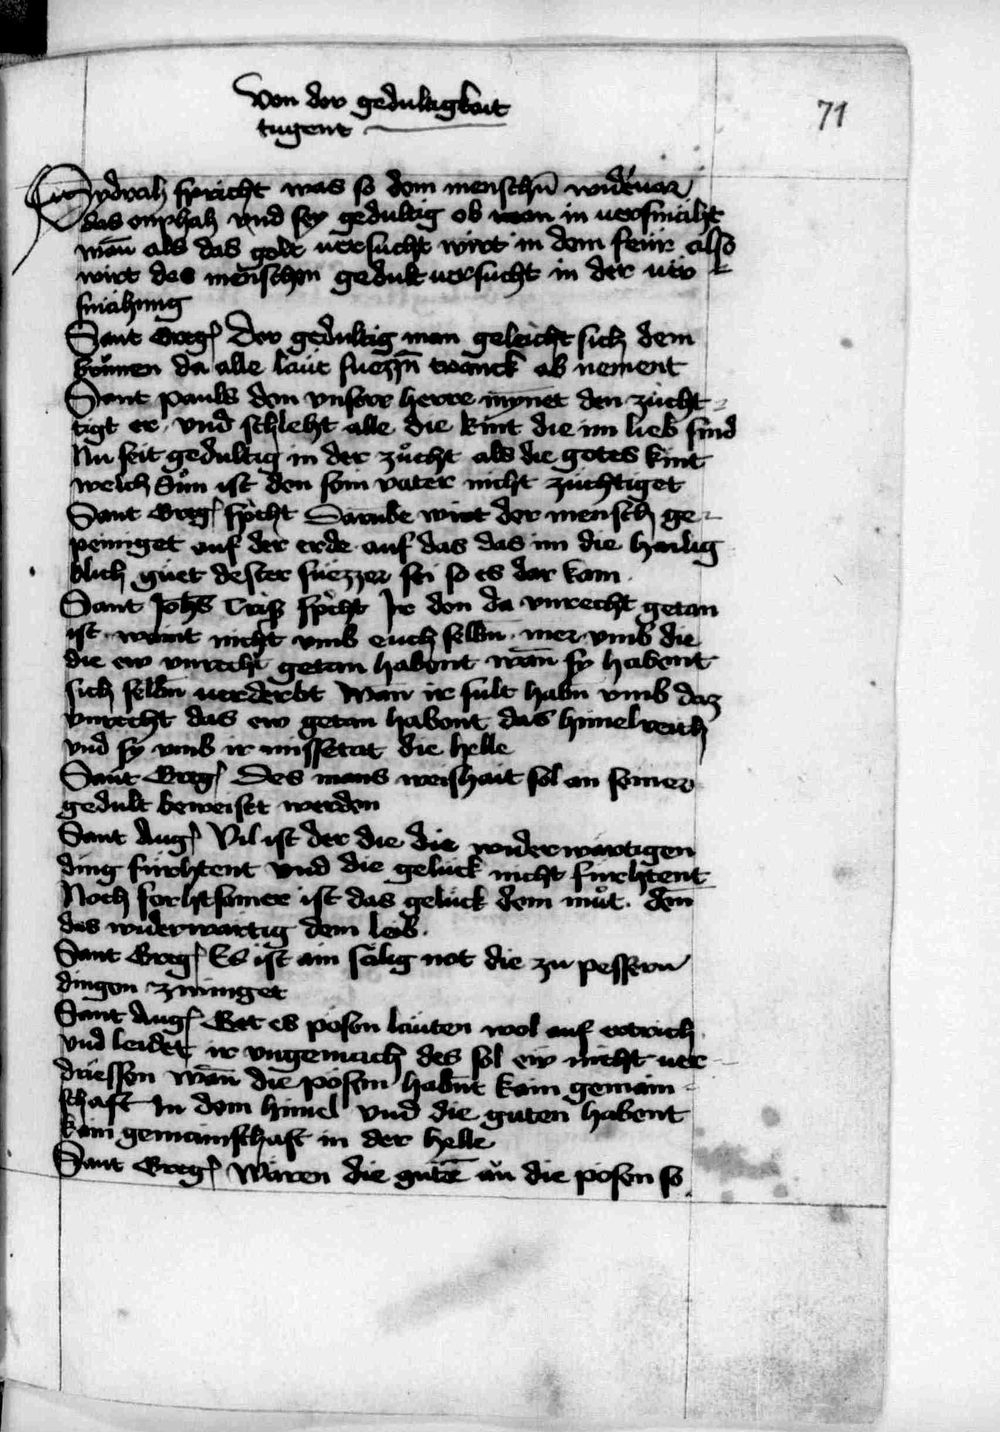 Von der gedultigkeit
tugent
71
Sydrach spricht was so dem menschn̄ widervar
das enphah vnd sey gedultig ob man in versmäht
wan̄ als das golt versucht wirt in dem feür also
wirt des menschen gedult versucht in der ver
smähung
Sant Greg Der gedultig man geleicht sich dem
brunnen da alle läut suezzn̄ tranck ab nement
Sant pauls den vnserr herre mynnet den zücht
tigt er vnd schleht alle die kint die im lieb sind
Nu seit gedultig in der zůcht als die gotes kint
welch Sůn ist den sein vater nicht züchtiget
Sant Greg sp̄cht Darūbe wirt der mensch ge
peiniget auf der erde auf das das im die heilig
klich guet dester süezzer sei so es dar kam
Sant Johs Cris sp̄cht Ir den da vnrecht getan
ist waint nicht vmb euch selbn̄ mer vmb die
die ew vnrecht getan habent wan̄ sy habent
sich selbn̄ verderbt Wan ir sult habn̄ vmb daz
vnrecht das ew getan habent das himelreich
vnd sy vmb ir missetat die helle
Sant Greg Des mans weishait sol an seiner
gedult beweiset werden
Sant Aug Vil ist der die die widerwärtigen
ding fürhtent vnd die gelück nicht fürhtent
Noch forhtsamer ist das gelück dem můt den̄
das widerwärtig dem leib
Sant Greg Es ist ain sälig not die zu pessern
dingen zwinget
Sant Aug Get es pösen läuten wol auf ertrich
vnd leidet ir vngemach des sol ew nicht ver
driessen wan̄ die pösen habn̄t kain gemain
schaft In dem himel vnd die guten habent
kain gemainschaft in der helle
Sant Greg Wären die guten̄ an die pösen so